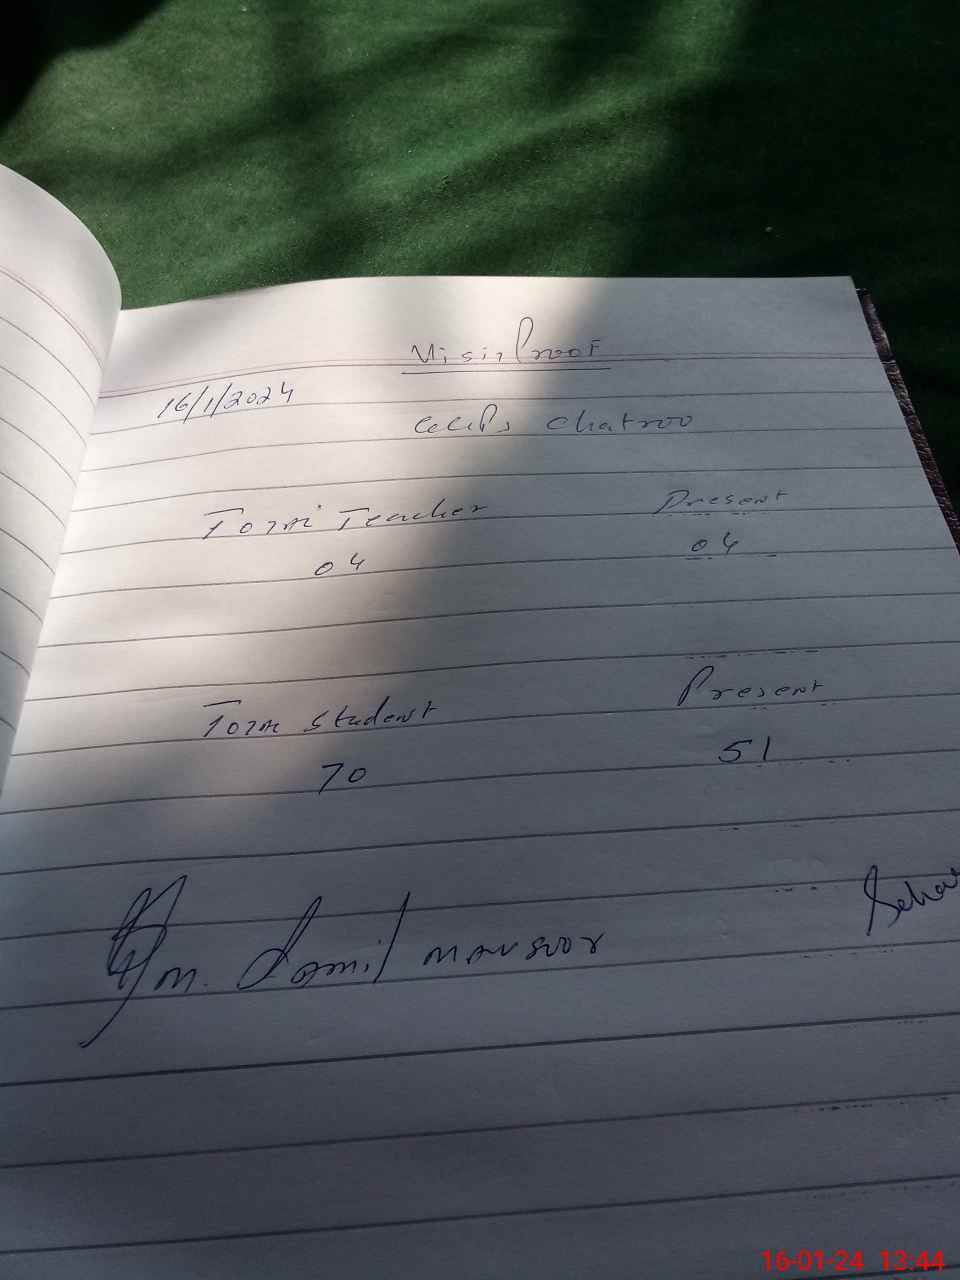 Visit Proof
16/1/2024
Chatroo
Total Teacher Present
04 04
Total Student Present
70 51
M. Jamil mansoor
16-01-24 13:44